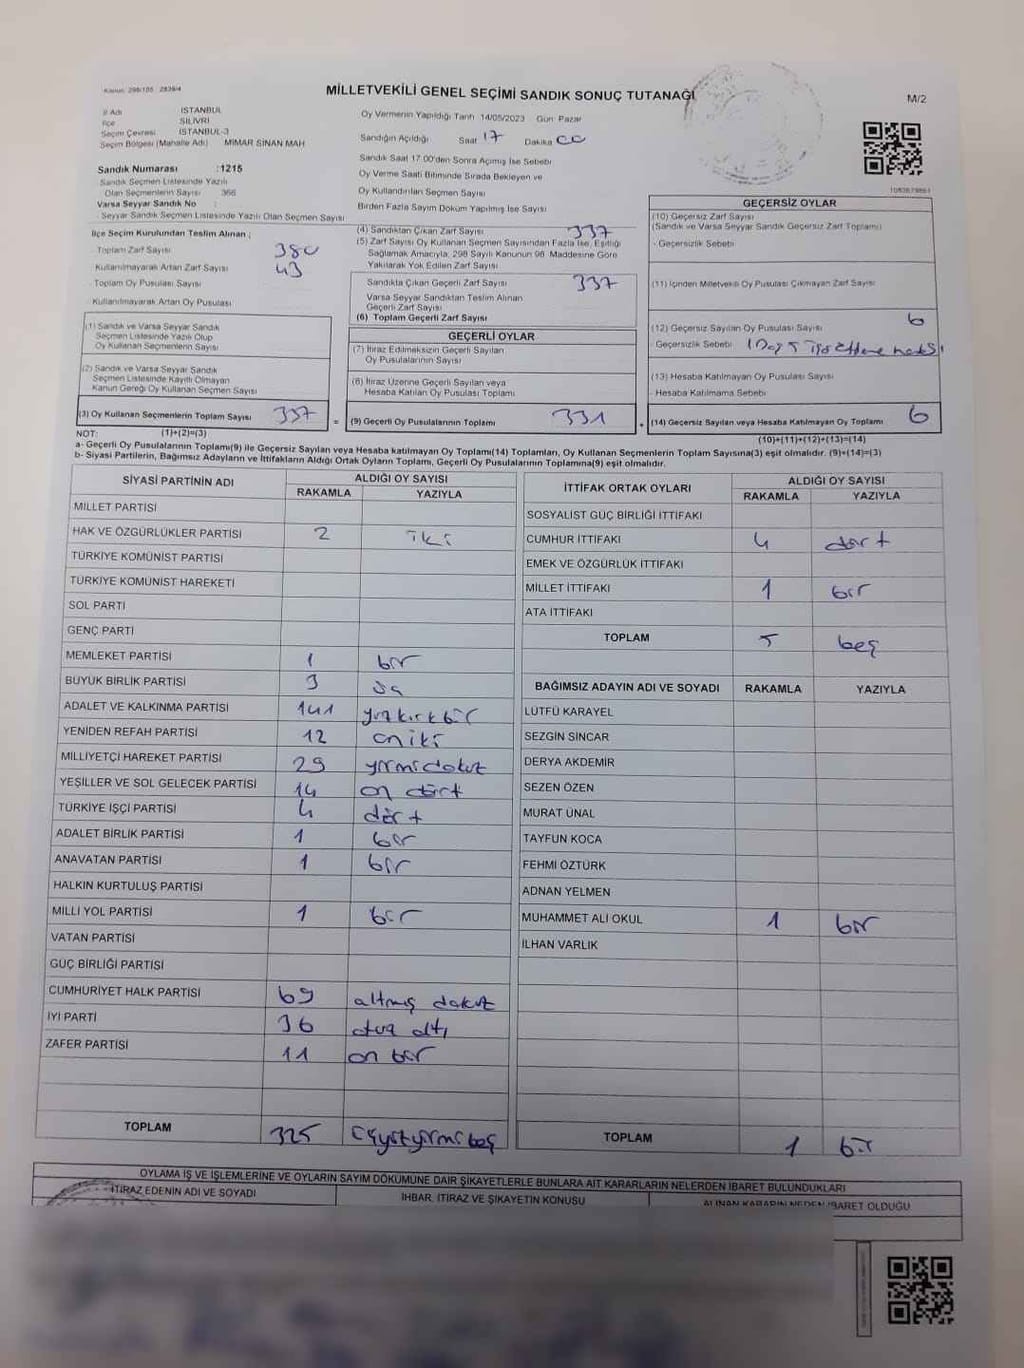 Kanun: 298/105 2839/4
MİLLETVEKİLİ GENEL SEÇİMİ SANDIK SONUÇ TUTANAĞI
M/2
İl Adı İSTANBUL
İlçe SİLİVRİ
Seçim Çevresi İSTANBUL-3
Seçim Bölgesi (Mahalle Adı) MİMAR SİNAN MAH
Sandık Numarası :1215
Sandık Seçmen Listesinde Yazılı
Olan Seçmenlerin Sayısı 366
Varsa Seyyar Sandık No :
Seyyar Sandık Seçmen Listesinde Yazılı Olan Seçmen Sayısı
Oy Vermenin Yapıldığı Tarih 14/05/2023 Gün: Pazar
Sandığın Açıldığı Saat 17 Dakika 00
Sandık Saat 17.00'den Sonra Açılmış İse Sebebi
Oy Verme Saati Bitiminde Sırada Bekleyen ve
Oy Kullandırılan Seçmen Sayısı
Birden Fazla Sayım Döküm Yapılmış İse Sayısı
İlçe Seçim Kurulundan Teslim Alınan ;
- Toplam Zarf Sayısı 380
- Kullanılmayarak Artan Zarf Sayısı 43
- Toplam Oy Pusulası Sayısı
- Kullanılmayarak Artan Oy Pusulası
(1) Sandık ve Varsa Seyyar Sandık
Seçmen Listesinde Yazılı Olup
Oy Kullanan Seçmenlerin Sayısı
(2) Sandık ve Varsa Seyyar Sandık
Seçmen Listesinde Kayıtlı Olmayan
Kanun Gereği Oy Kullanan Seçmen Sayısı
(3) Oy Kullanan Seçmenlerin Toplam Sayısı 337
(1)+(2)=(3)
(4) Sandıktan Çıkan Zarf Sayısı 337
(5) Zarf Sayısı Oy Kullanan Seçmen Sayısından Fazla İse, Eşitliği
Sağlamak Amacıyla, 298 Sayılı Kanunun 98. Maddesine Göre
Yakılarak Yok Edilen Zarf Sayısı
Sandıkta Çıkan Geçerli Zarf Sayısı 337
Varsa Seyyar Sandıktan Teslim Alınan
Geçerli Zarf Sayısı
(6) Toplam Geçerli Zarf Sayısı
GEÇERLİ OYLAR
(7) İtiraz Edilmeksizin Geçerli Sayılan
Oy Pusulalarının Sayısı
(8) İtiraz Üzerine Geçerli Sayılan veya
Hesaba Katılan Oy Pusulası Toplamı
= (9) Geçerli Oy Pusulalarının Toplamı 331 +
GEÇERSİZ OYLAR
(10) Geçersiz Zarf Sayısı
(Sandık ve Varsa Seyyar Sandık Geçersiz Zarf Toplamı)
- Geçersizlik Sebebi
(11) İçinden Milletvekili Oy Pusulası Çıkmayan Zarf Sayısı
(12) Geçersiz Sayılan Oy Pusulası Sayısı 6
- Geçersizlik Sebebi
(13) Hesaba Katılmayan Oy Pusulası Sayısı
- Hesaba Katılmama Sebebi
(14) Geçersiz Sayılan veya Hesaba Katılmayan Oy Toplamı 6
(10)+(11)+(12)+(13)=(14)
NOT:
a- Geçerli Oy Pusulalarının Toplamı(9) ile Geçersiz Sayılan veya Hesaba katılmayan Oy Toplamı(14) Toplamları, Oy Kullanan Seçmenlerin Toplam Sayısına(3) eşit olmalıdır. (9)+(14)=(3)
b- Siyasi Partilerin, Bağımsız Adayların ve İttifakların Aldığı Ortak Oyların Toplamı, Geçerli Oy Pusulalarının Toplamına(9) eşit olmalıdır.
SİYASİ PARTİNİN ADI
ALDIĞI OY SAYISI
RAKAMLA YAZIYLA
MİLLET PARTİSİ
HAK VE ÖZGÜRLÜKLER PARTİSİ 2 iki
TÜRKİYE KOMÜNİST PARTİSİ
TÜRKİYE KOMÜNİST HAREKETİ
SOL PARTİ
GENÇ PARTİ
MEMLEKET PARTİSİ 1 bir
BÜYÜK BİRLİK PARTİSİ 3
ADALET VE KALKINMA PARTİSİ 141 yüzkırkbir
YENİDEN REFAH PARTİSİ 12 oniki
MİLLİYETÇİ HAREKET PARTİSİ 29 yirmidokuz
YEŞİLLER VE SOL GELECEK PARTİSİ 14 on dört
TÜRKİYE İŞÇİ PARTİSİ 4 dört
ADALET BİRLİK PARTİSİ 1 bir
ANAVATAN PARTİSİ 1 bir
HALKIN KURTULUŞ PARTİSİ
MİLLİ YOL PARTİSİ 1 bir
VATAN PARTİSİ
GÜÇ BİRLİĞİ PARTİSİ
CUMHURİYET HALK PARTİSİ 69 altmış dokuz
İYİ PARTİ 36 otuz altı
ZAFER PARTİSİ 11 on bir
TOPLAM 325 üçyüzyirmibeş
İTTİFAK ORTAK OYLARI
ALDIĞI OY SAYISI
RAKAMLA YAZIYLA
SOSYALİST GÜÇ BİRLİĞİ İTTİFAKI
CUMHUR İTTİFAKI 4 dört
EMEK VE ÖZGÜRLÜK İTTİFAKI
MİLLET İTTİFAKI 1 bir
ATA İTTİFAKI
TOPLAM 5 beş
BAĞIMSIZ ADAYIN ADI VE SOYADI RAKAMLA YAZIYLA
LÜTFÜ KARAYEL
SEZGİN SİNCAR
DERYA AKDEMİR
SEZEN ÖZEN
MURAT ÜNAL
TAYFUN KOCA
FEHMİ ÖZTÜRK
ADNAN YELMEN
MUHAMMET ALİ OKUL 1 bir
İLHAN VARLIK
TOPLAM 1 bir
OYLAMA İŞ VE İŞLEMLERİNE VE OYLARIN SAYIM DÖKÜMÜNE DAİR ŞİKAYETLERLE BUNLARA AİT KARARLARIN NELERDEN İBARET BULUNDUKLARI
İTİRAZ EDENİN ADI VE SOYADI
İHBAR, İTİRAZ VE ŞİKAYETİN KONUSU
ALINAN KARARIN NEDEN İBARET OLDUĞU